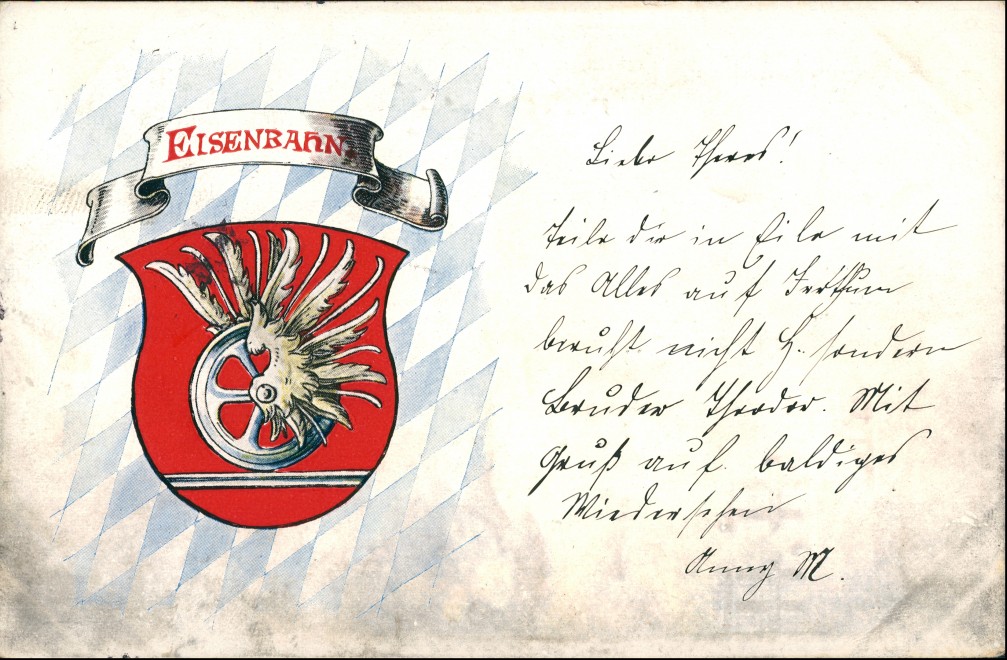 EISENBAHN.
Liebe Theres!
Teile dir in Eile mit
das Alles auf Irrthum
beruht nicht H. sondern
Bruder Theodor. Mit
Gruß auf baldiges
Wiedersehen
Anny M.